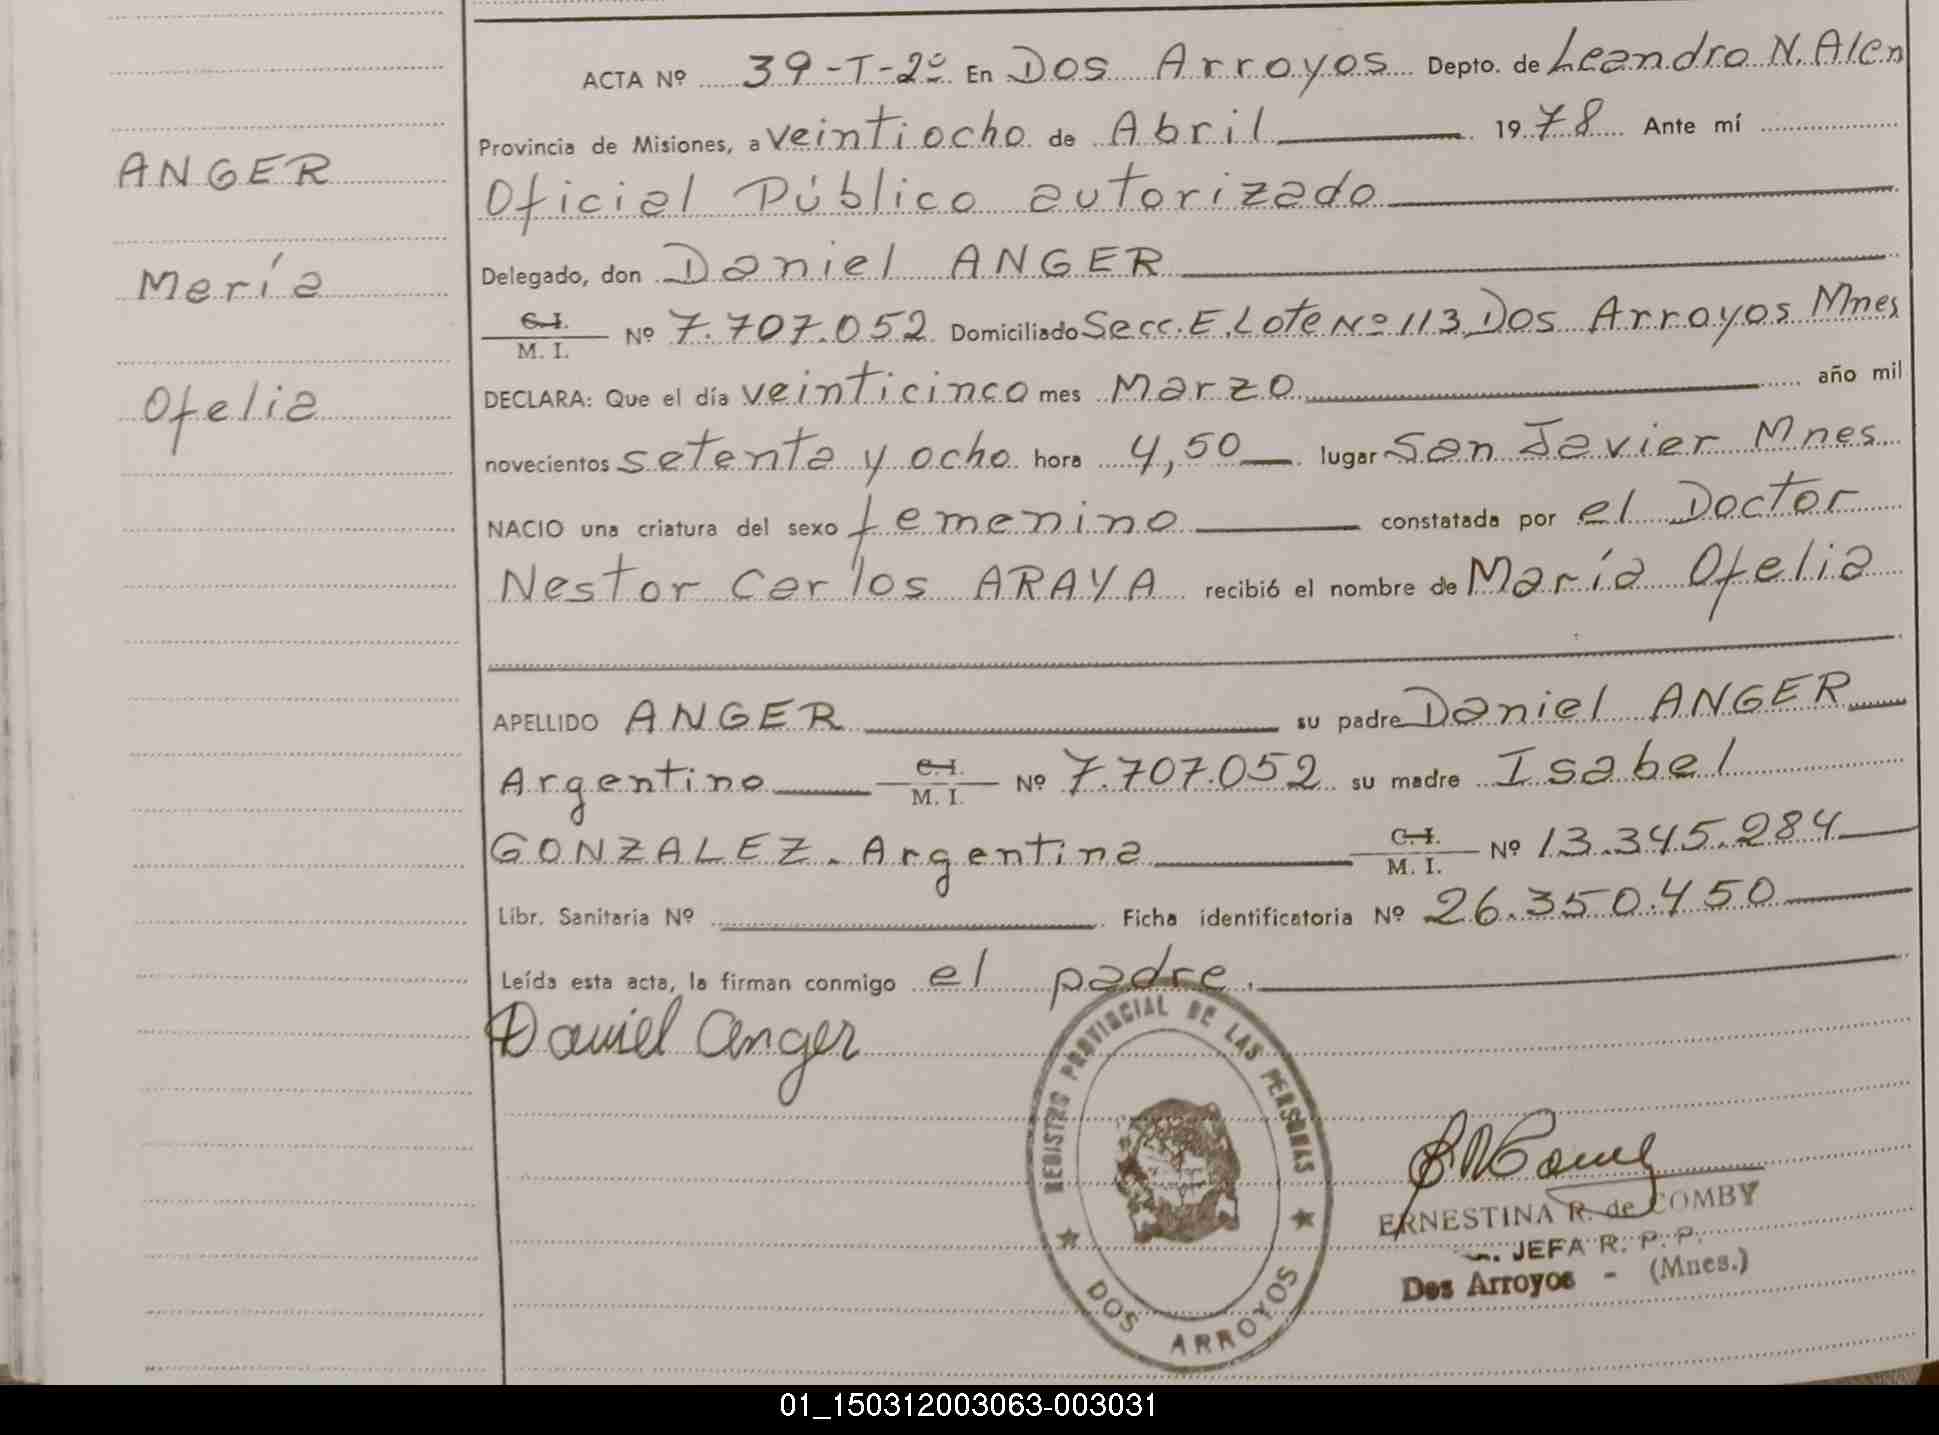 ANGER
María
Ofelia
ACTA Nº 39-T-2º En Dos Arroyos Depto. de Leandro N. Alen
Provincia de Misiones, a veintiocho de Abril 1978 Ante mí
Oficial Público autorizado
Delegado, don Daniel ANGER
C.I.
M. I. Nº 7.707.052 Domiciliado Secc. E. Lote Nº 113 Dos Arroyos Mnes
DECLARA: Que el día veinticinco mes Marzo año mil
novecientos setenta y ocho hora 4,50 lugar San Javier Mnes
NACIO una criatura del sexo femenino constatada por el Doctor
Nestor Carlos ARAYA recibió el nombre de María Ofelia
APELLIDO ANGER su padre Daniel ANGER
Argentino C.I. M. I. Nº 7.707.052 su madre Isabel
GONZALEZ. Argentina C.I. M. I. Nº 13.345.284
Libr. Sanitaria Nº Ficha identificatoria Nº 26.350.450
Leída esta acta, la firman conmigo el padre.
Daniel Anger
REGISTRO PROVINCIAL DE LAS PERSONAS
DOS ARROYOS
ERNESTINA R. de COMBY
JEFA R. P. P.
Dos Arroyos - (Mnes.)
01_150312003063-003031